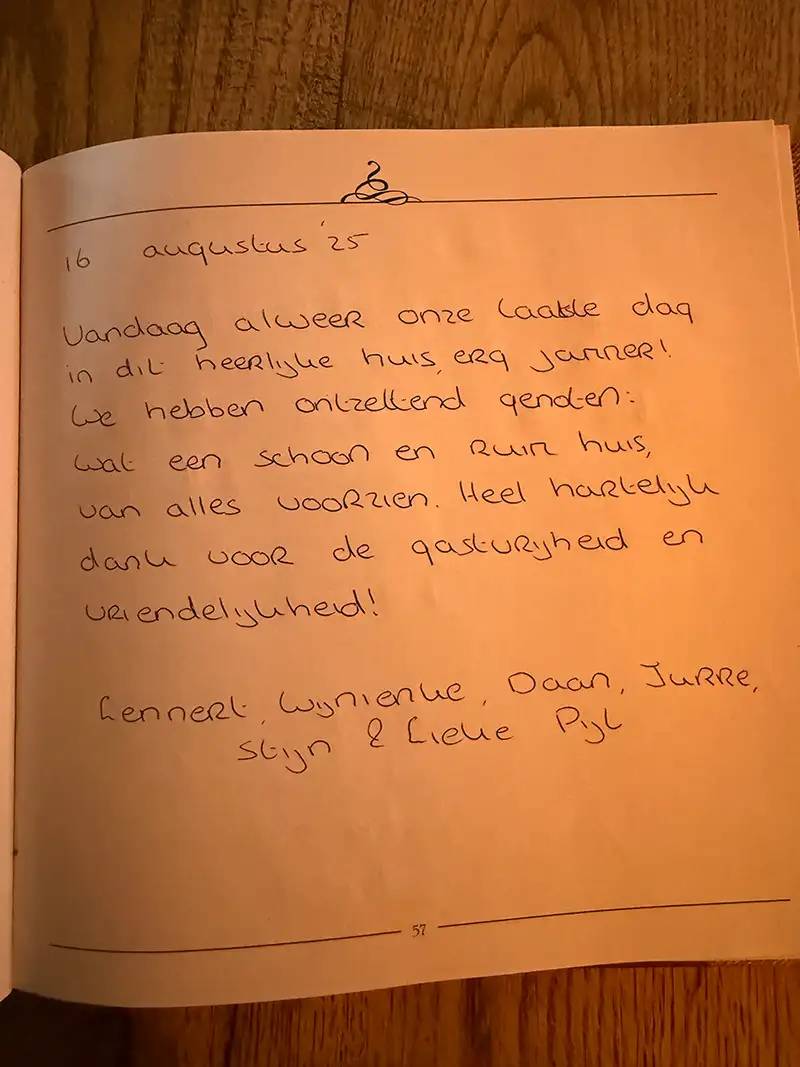 16 augustus '25
Vandaag alweer onze laatste dag
in dit heerlijke huis, erg jammer!
We hebben ontzettend genoten:
wat een schoon en ruim huis,
van alles voorzien. Heel hartelijk
dank voor de gastvrijheid en
vriendelijkheid!
Lennert, Wijnienke, Daan, Jurre,
Stijn & Lieke Pijl
57